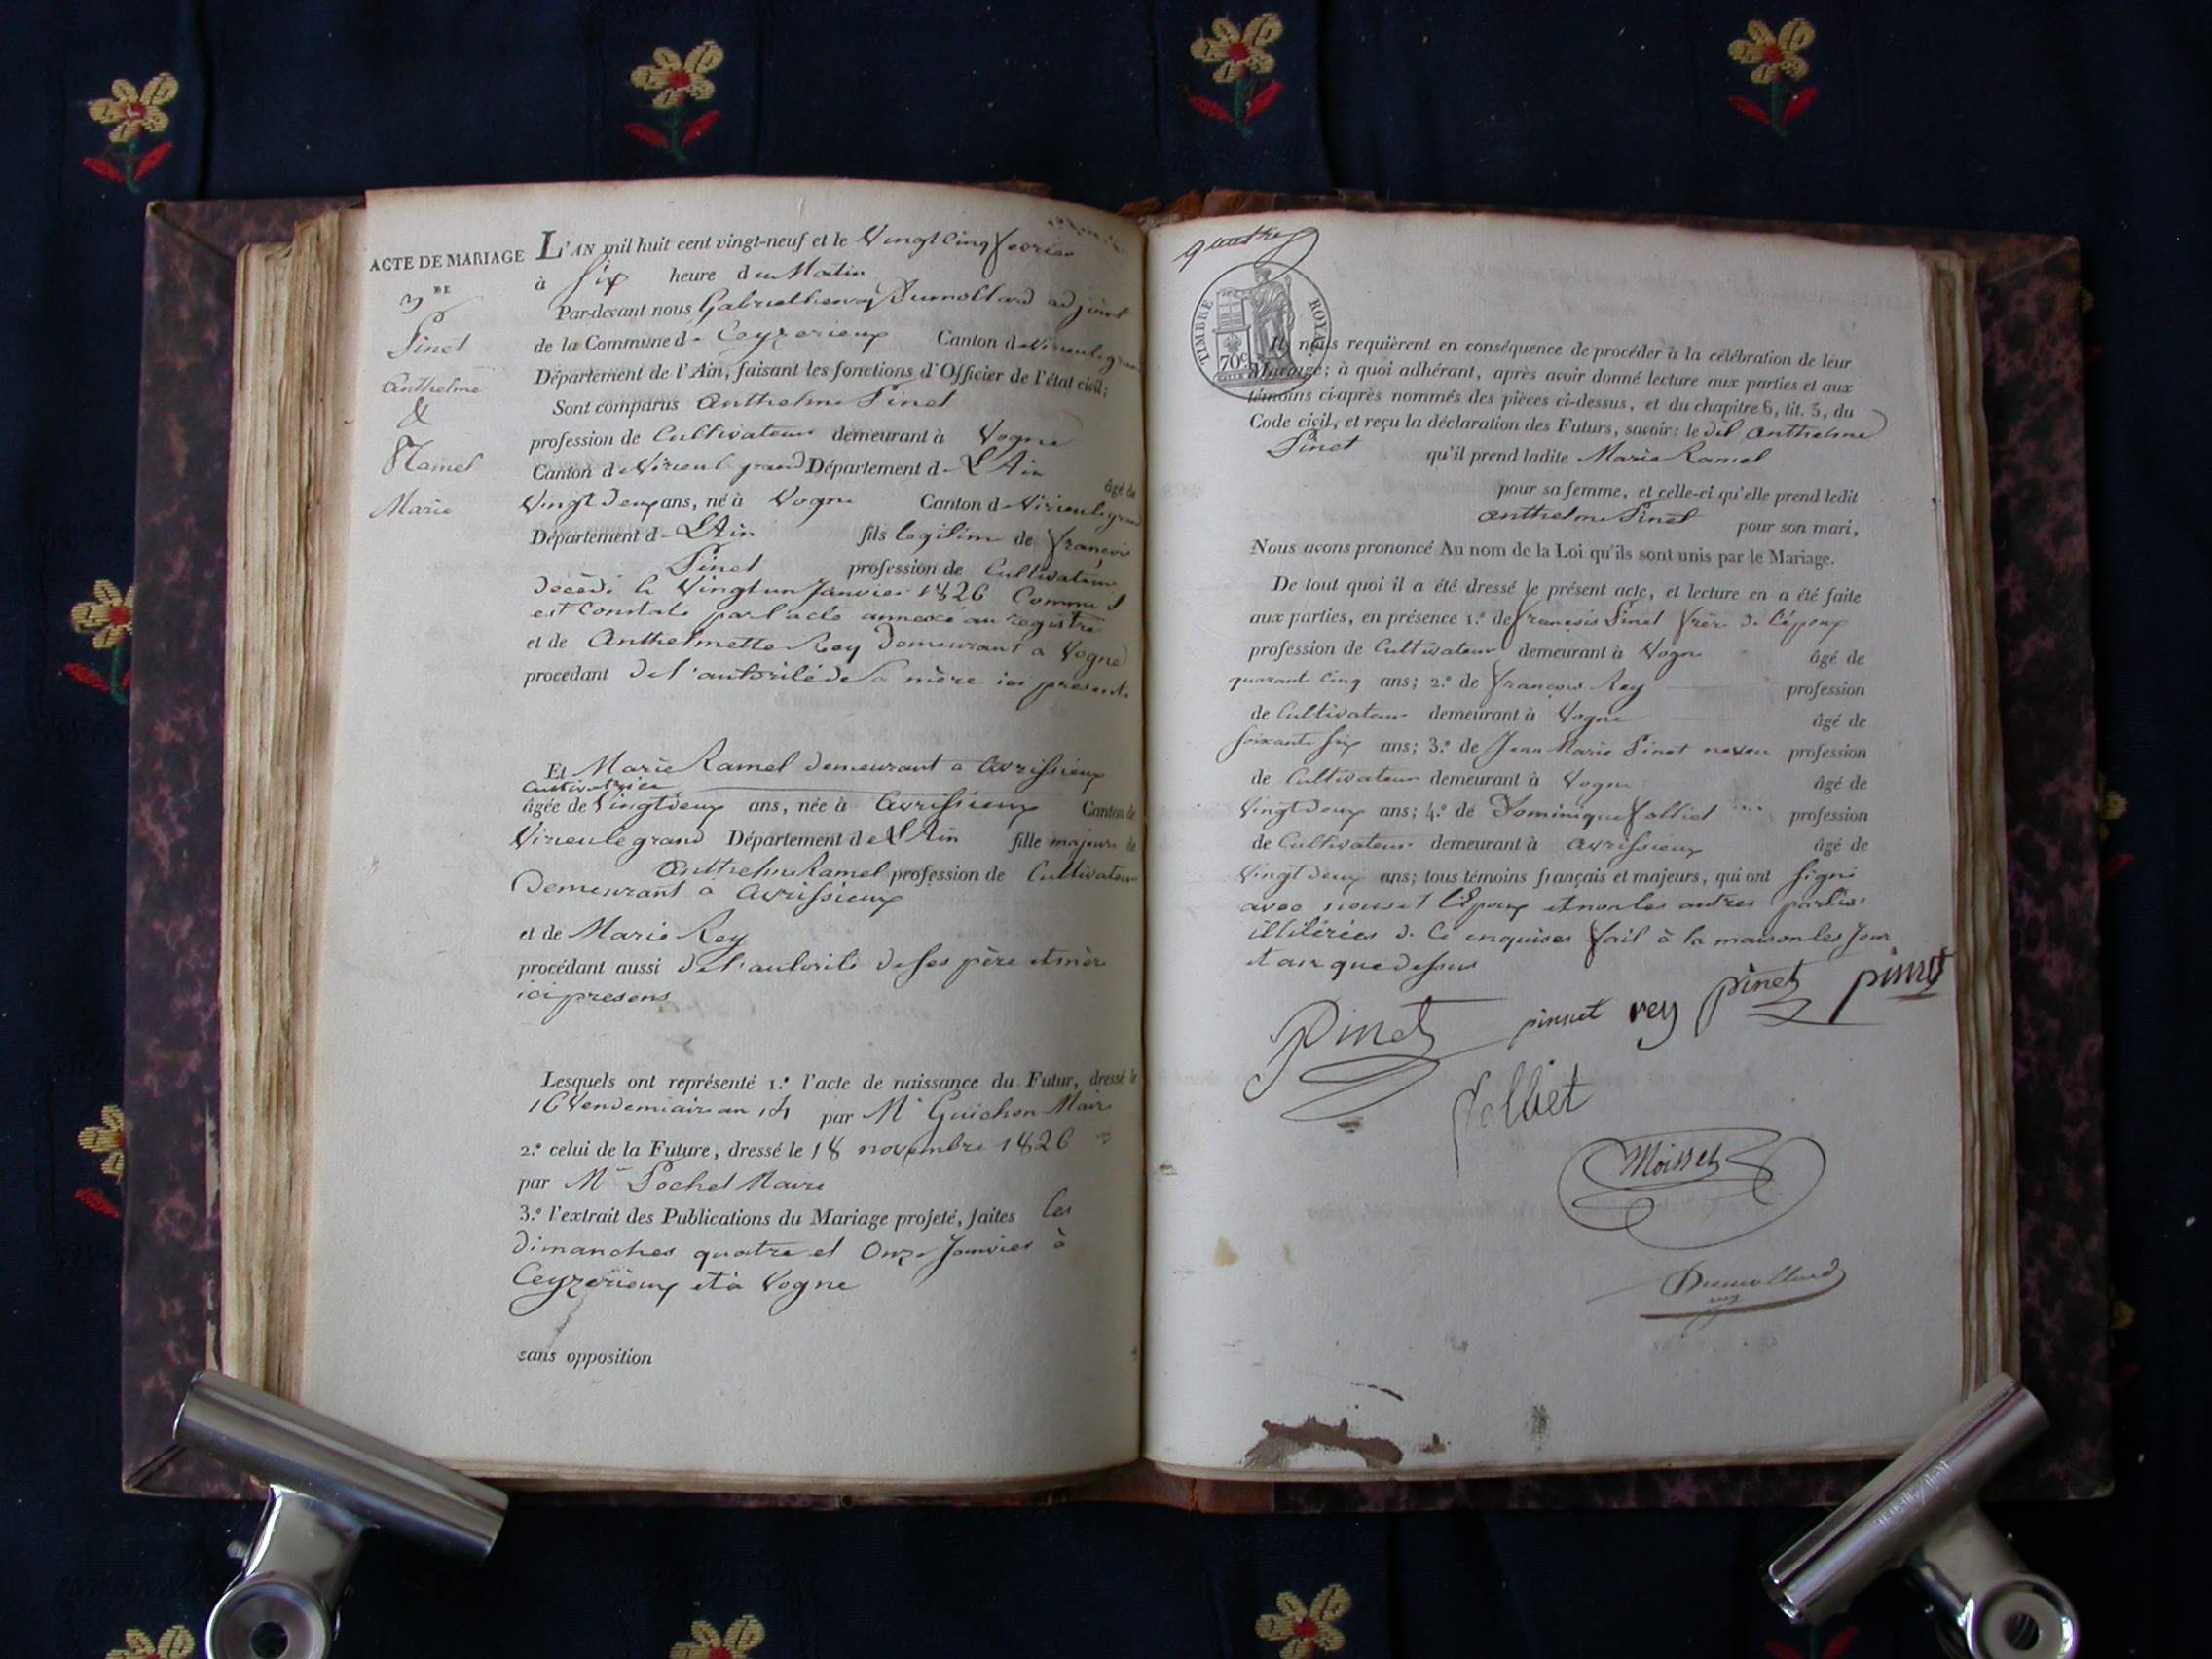 ACTE DE MARIAGE
DE
Pinet
Anthelme
&
Ramel
Marie
L'AN mil huit cent vingt-neuf et le Vingt Cinq fevrier
à Six heure du Matin
Par-devant nous Gabriel henry Dumollard adjoint
de la Commune de Ceyzerieux Canton de Virieule grand
Département de l'Ain, faisant les fonctions d'Officier de l'état civil;
Sont comparus Anthelme Pinet
profession de Cultivateur demeurant à Vogne
Canton de Virieule grand Département de L'Ain âgé de
Vingt Deux ans, né à Vogne Canton de Virieule grand
Département de L'Ain fils legitime de françois
Pinet profession de Cultivateur
décédé le Vingt un Janvier 1826 Comme il
est Constaté par l'acte annexé au registre
et de Anthelmette Rey Demeurant a Vogne
procedant De l'autorité de Sa mère ici presente
Et Marie Ramel demeurant a Avrissieux
Cultivatrice
âgée de Vingt deux ans, née à Avrissieux Canton de
Virieule grand Département de L'Ain fille majeure de
Anthelme Ramel profession de Cultivateur
Demeurant a Avrissieux
et de Marie Rey
procédant aussi de l'autorité de ses père et mère
ici presens
Lesquels ont représenté 1.º l'acte de naissance du Futur, dressé le
16 Vendemiaire an 14 par Mr Guichon Maire
2.º celui de la Future, dressé le 18 novembre 1826
par Mr Pochet Maire
3.º l'extrait des Publications du Mariage projeté, faites les
dimanches quatre et Onze Janvier à
Ceyzerieux et à Vogne
sans opposition
quatre
TIMBRE ROYAL
70c
Ils nous requièrent en conséquence de procéder à la célébration de leur
Mariage; à quoi adhérant, après avoir donné lecture aux parties et aux
témoins ci-après nommés des pièces ci-dessus, et du chapitre 6, tit. 5, du
Code civil, et reçu la déclaration des Futurs, savoir: le dit Anthelme
Pinet qu'il prend ladite Marie Ramel
pour sa femme, et celle-ci qu'elle prend ledit
Anthelme Pinet pour son mari,
Nous avons prononcé Au nom de la Loi qu'ils sont unis par le Mariage.
De tout quoi il a été dressé le présent acte, et lecture en a été faite
aux parties, en présence 1.º de françois Pinet frère de l'époux
profession de Cultivateur demeurant à Vogne âgé de
quarant Cinq ans; 2.º de françois Rey profession
de Cultivateur demeurant à Vogne âgé de
soixante six ans; 3.º de Jean Marie Pinet neveu profession
de Cultivateur demeurant à Vogne âgé de
Vingt deux ans; 4.º de Dominique folliet profession
de Cultivateur demeurant à Avrissieux âgé de
Vingt deux ans; tous témoins français et majeurs, qui ont signé
avec nous et l'Epoux et non les autres parties
illiterées de ce enquises fait à la maison les Jour
et an que dessus
Pinet pinnet rey pinet pinet
folliet
Moisset
Dumollard